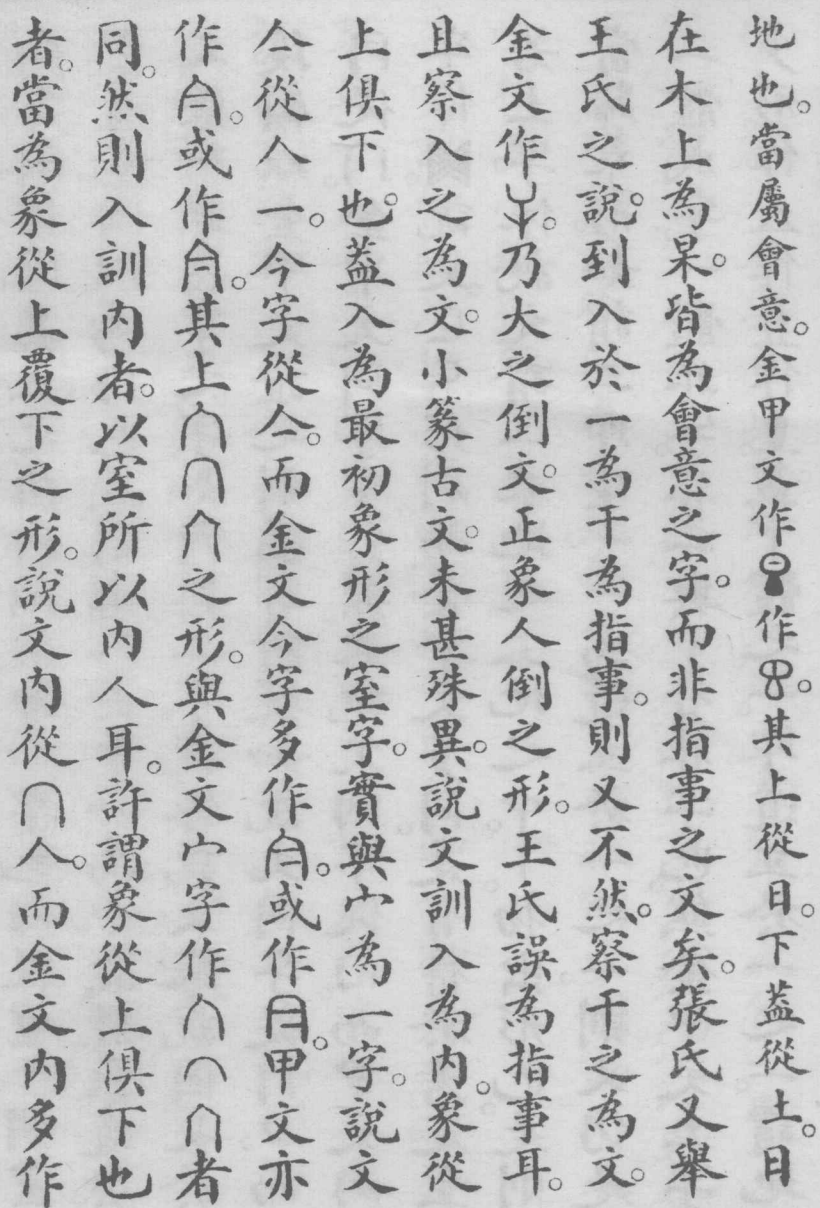 地也。當屬會意。金甲文作作。其上從日。下蓋從土。日
在木上為杲。皆為會意之字。而非指事之文矣。張氏又舉
王氏之說。到入於一為干為指事。則又不然。察干之為文。
金文作。乃大之倒文。正象人倒之形。王氏誤為指事耳。
且察入之為文。小篆古文。未甚殊異。說文訓入為内。象從
上俱下也。蓋入為最初象形之室字。實與宀為一字。說文
亼從人一。今字從亼。而金文今字多作。或作。甲文亦
作。或作。其上之形。與金文宀字作者
同。然則入訓内者。以室所以内人耳。許謂象從上俱下也
者。當為象從上覆下之形。說文内從冂入。而金文内多作